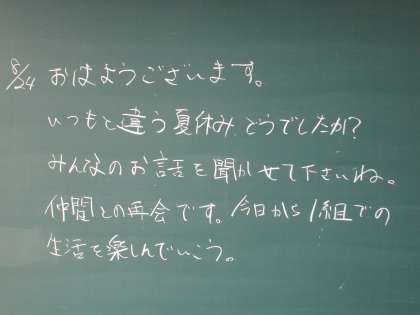 8/24 おはようございます。
いつもと違う夏休みどうでしたか?
みんなのお話を聞かせて下さいね。
仲間との再会です。今日から1組での
生活を楽しんでいこう。